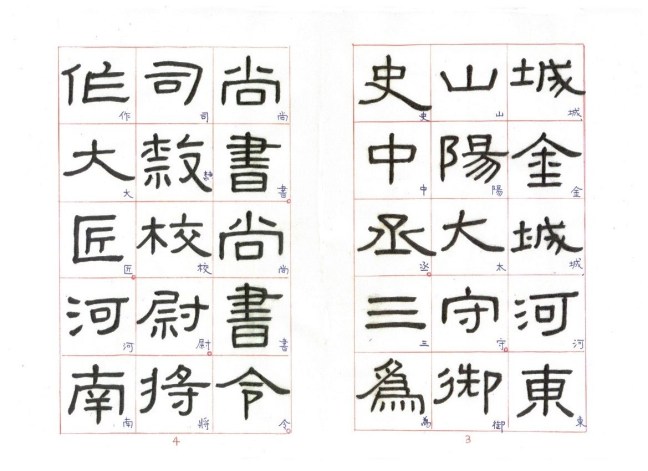 城金城河東
城金城河東
山陽大守御
山陽太守御
史中丞三爲
史中丞三為
3
尚書尚書令
尚書尚書令
司隸校尉將
司隸校尉將
作大匠河南
作大匠河南
4